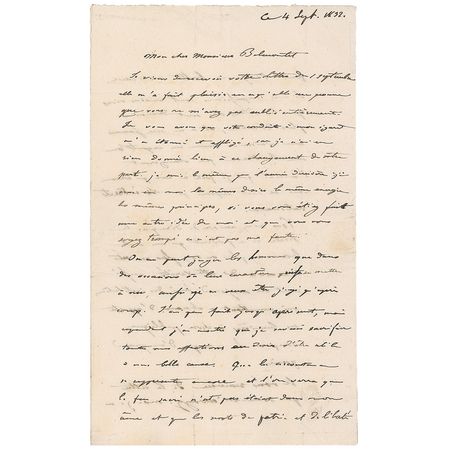 Ce 4 Sept. 1832.
Mon cher Monsieur Belmontet
Je viens de recevoir votre lettre du 1 septembre
elle m'a fait plaisir en ce qu'elle me prouve
que vous ne m'avez pas oublié entièrement.
Je vous avoue que votre conduite à mon égard
m'a étonné et affligé, car je n'ai en
rien donné lieu à ce changement de votre
part je suis le même que l'année dernière j'ai
les mêmes désirs la même énergie
les mêmes principes, si vous vous étiez fait
une autre idée de moi et que vous vous
soyez trompé ce n'est pas ma faute.
On ne peut juger les hommes que dans
des occasions où leur caractère puisse se mettre
à nu
J'ai que fait jusqu'à présent, mais
cependant j'ai montré que je savais sacrifier
toutes mes affections au désir d'être utile
à notre belle cause. Que les
se encore et l'on verra que
le feu sacré n'est pas éteint dans mon
âme et que les mots de patrie et de liberté